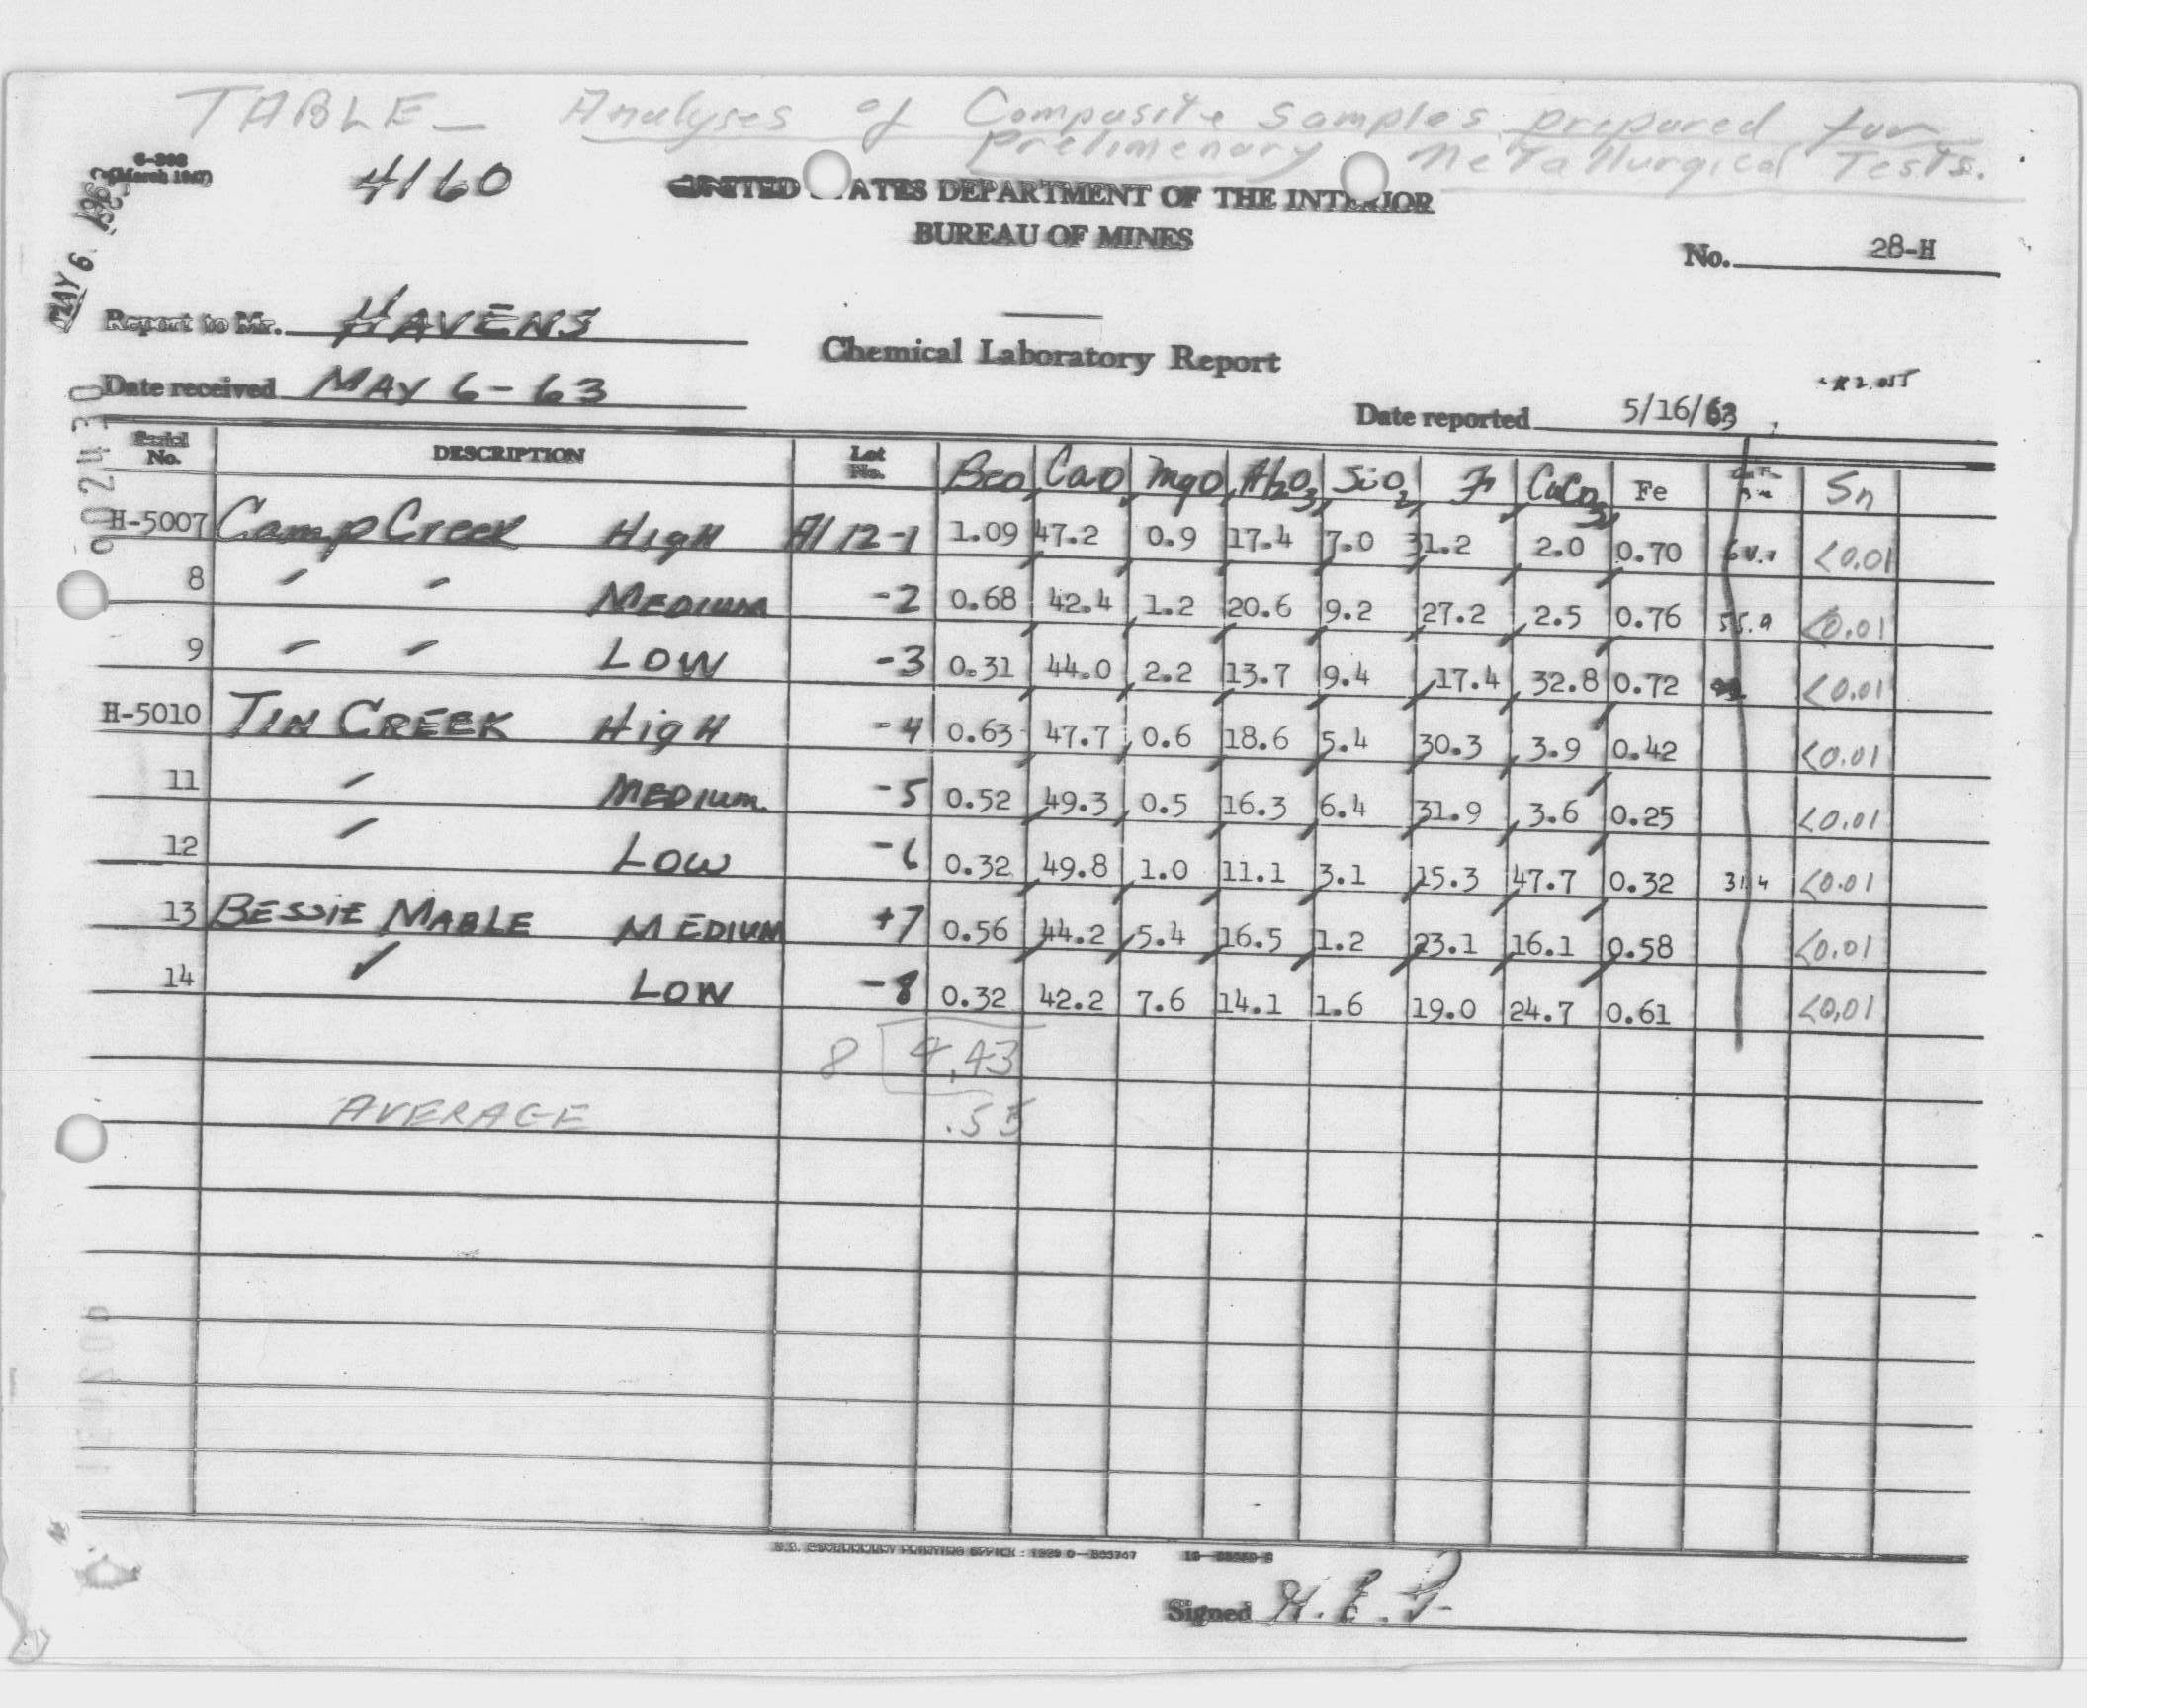 TABLE - Analyses of Composite Samples prepared for
Prelimenary Metallurgical Tests.
6-398
(March 1947)
4160
UNITED ATES DEPARTMENT OF THE INTERIOR
BUREAU OF MINES
No. 28-H
MAY 6 1963
Report to Mr. HAVENS
Chemical Laboratory Report
Date received MAY 6-63
Date reported 5/16/63
902430
Serial No. DESCRIPTION Lot No. BeO CaO MgO Al2O3 SiO2 F CaCO3 Fe Sn
H-5007 Camp Creek High 12-1 1.09 47.2 0.9 17.4 7.0 31.2 2.0 0.70 <0.01
8 " " MEDIUM -2 0.68 42.4 1.2 20.6 9.2 27.2 2.5 0.76 55.9 <0.01
9 " " LOW -3 0.31 44.0 2.2 13.7 9.4 17.4 32.8 0.72 <0.01
H-5010 TIN CREEK HigH -4 0.63 47.7 0.6 18.6 5.4 30.3 3.9 0.42 <0.01
11 " MEDIUM. -5 0.52 49.3 0.5 16.3 6.4 31.9 3.6 0.25 <0.01
12 " LOW -6 0.32 49.8 1.0 11.1 3.1 15.3 47.7 0.32 31.4 <0.01
13 BESSIE MABLE MEDIUM +7 0.56 44.2 5.4 16.5 1.2 23.1 16.1 0.58 <0.01
14 LOW -8 0.32 42.2 7.6 14.1 1.6 19.0 24.7 0.61 <0.01
8 4.43
AVERAGE .55
Signed H. E. P.